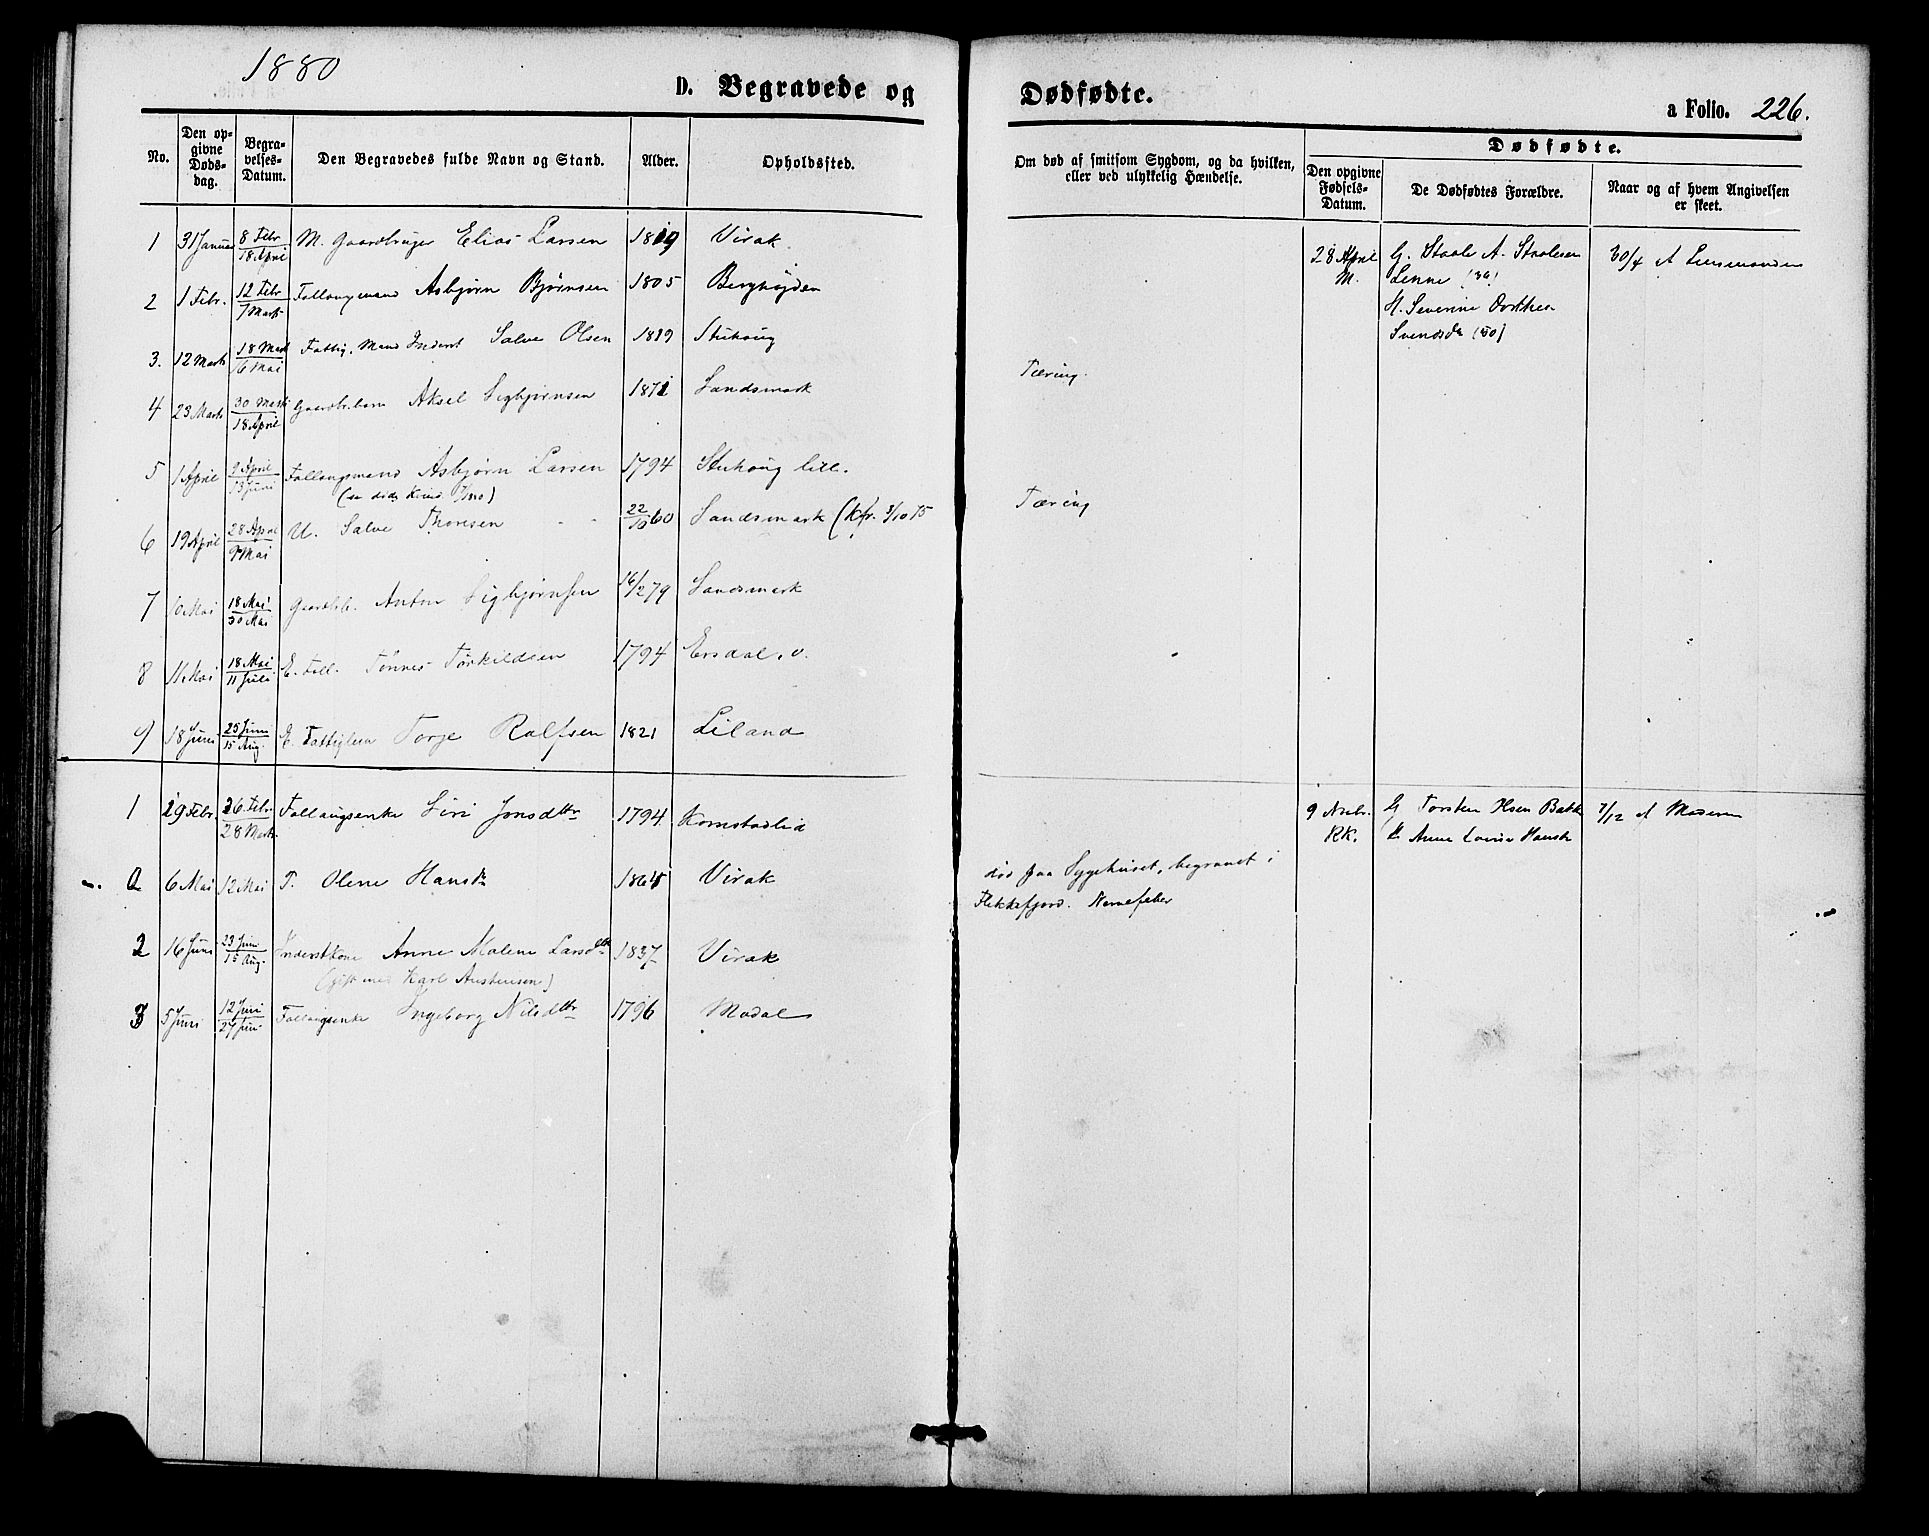 1880
D. Begravede og
No.
Den opgivne Døds-dag.
Begravelses-Datum.
Den Begravedes fulde Navn og Stand.
Alder.
Opholdssted.
1 31 Januar 8 Febr 18 April M. Gaardbruger Elias Larsen 1819 Virak
2 1 Febr. 12 Febr 7 Marts Asbjørn Bjørnsen 1805
3. 12 Marts 18 Mart 16 Mai Fattig. Mand Inderst Salve Olsen 1819 Stuhoug
4 23 Marts 30 Marts 18 April Gaardbr.barn Aksel Sigbjørnsen 1871 Sandsmark
5 1 April 9 April 13 Juni Follaugsmand Asbjørn Larsen 1794 Stuhoug lill.
6 19 April 28 April 9 Mai U. Salve Thorsen 22/10 60 Sandsmark (kfr. 3/10 75
7 10 Mai 18 Mai 30 Mai Gaardbrb. Anton Sigbjørnsen 16/2 79 Sandsmark
8 11 Mai 18 Mai 11 Juli E. Foll. Tønnes Torkildsen 1794 Ersdal. v.
9 18 Juni 25 Juni 15 Aug. E. Fattiglem Torje Rolfsen 1821 Liland
1 19 Febr. 26 Febr. 28 Marts Follaugsenke Siri Jonsdtr 1794 Kornstadlid
0 6 Mai 12 Mai T. Olene Hansd. 1864 Virak
2 16 Juni 23 Juni 15 Aug. Inderstkone Anne Malene Larsdtr 1837 Virak
(gift med Karl Austensen)
3 5 Juni 12 Juni 27 Juni Follaugsenke Ingeborg Nilsdtr 1796 Modal
Dødfødte.
a Folio. 226.
Om død af smitsom Sygdom, og da hvilken,
eller ved ulykkelig Hændelse.
Dødfødte.
Den opgivne Fødsels-Datum.
De Dødfødtes Forældre.
Naar og af hvem Angivelsen er skeet.
28 April G. Staale A. Staalesen 30/4 A Lensmanden
M. Lenne
H. Severine Dorthea
Svendsd.
Tæring.
Tæring
9 Nvbr. G Torsten 7/12 A Moderen
KK. H Anne Lovise
død paa Sygehuset, begravet i
Flekkefjord. Nervefeber